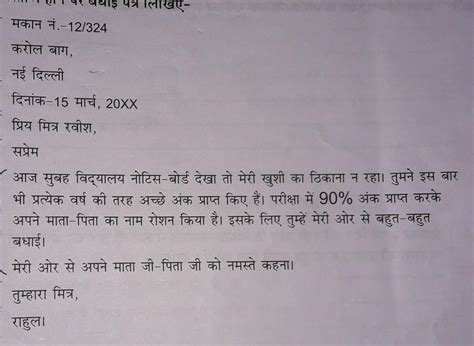 पर बधाई पत्र लिखिए-
मकान नं.-12/324
करोल बाग,
नई दिल्ली
दिनांक-15 मार्च, 20XX
प्रिय मित्र रवीश,
सप्रेम
आज सुबह विद्यालय नोटिस-बोर्ड देखा तो मेरी खुशी का ठिकाना न रहा। तुमने इस बार
भी प्रत्येक वर्ष की तरह अच्छे अंक प्राप्त किए हैं। परीक्षा में 90% अंक प्राप्त करके
अपने माता-पिता का नाम रोशन किया है। इसके लिए तुम्हें मेरी ओर से बहुत-बहुत
बधाई।
मेरी ओर से अपने माता जी-पिता जी को नमस्ते कहना।
तुम्हारा मित्र,
राहुल।